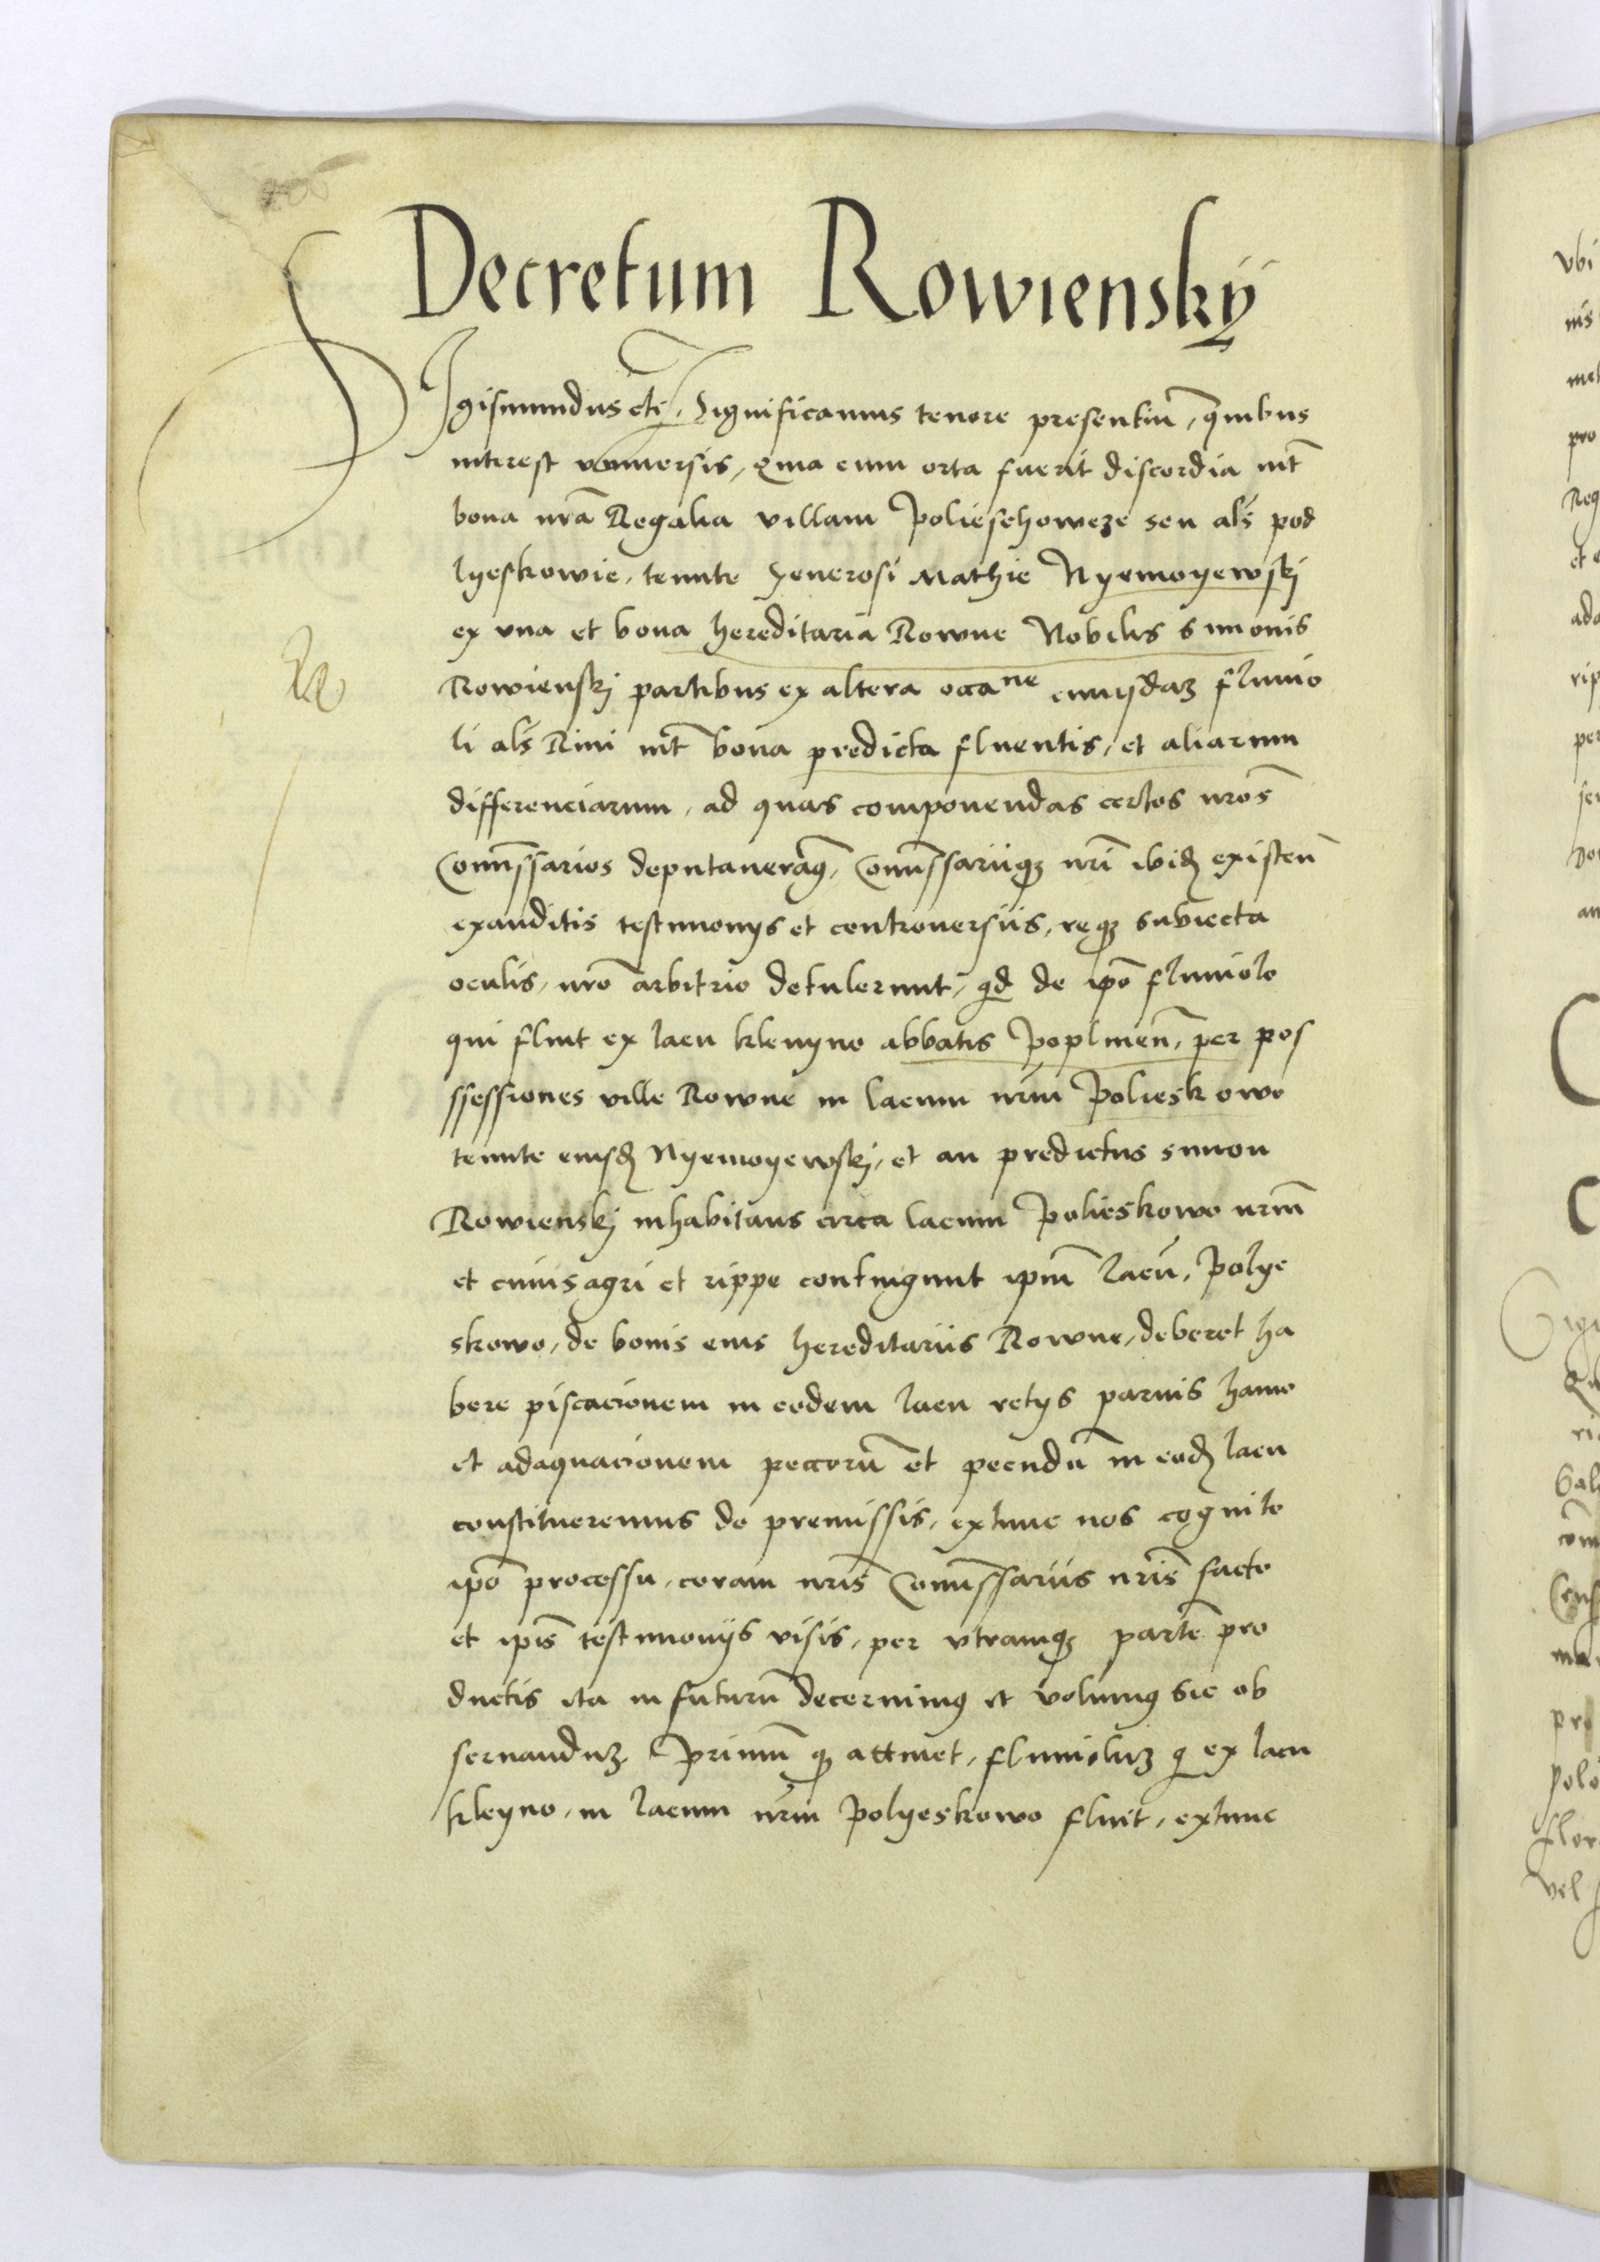 Decretum Rowiensky
SIgismundus etc. Significamus tenore presentiũ, quibus
interest vniuersis, Quia cum orta fuerit discordia int̃
bona nr̃a Regalia villam Polieschowcze seu als̃ pod
lyeskowie, tenute Generosi Mathie Nyemoyewskj
ex vna et bona hereditaria Rowne Nobilis Simonis
Rowienskj partibus ex altera occane cuiusdaʒ fluuio
li als̃ Rini int̃ bona predicta fluentis, et aliarum
differenciarum, ad quas componendas certos nr̃os
Comĩssarios deputaueramꝰ, Comĩssariiqꝫ nr̃i ibidꝫ existeñ
exauditis testimonys et controuersiis, reqꝫ subiecta
oculis, nr̃o arbitrio detulerunt, qd de ip̃o fluuiolo
qui fluit ex lacu klenyno abbatis Poplineñ, per pos
ssessiones ville Rowne in lacum nr̃m Polieskowo
tenute eiusdꝫ Nyemoyewskj, et an predictus Simon
Rowienskj inhabitans circa lacum Polieskowo nr̃m
et cuius agri et rippe contingunt ip̃m lacũ, Polye
skowo, de bonis eius hereditariis Rowne, deberet ha
bere piscacionem in eodem lacu retys paruis hamo
et adaquacionem peccorũ et pecudũ in eodꝫ lacu
constitueremus de premissis, extunc nos cognito
ip̃o processu, coram nr̃is Comĩssariis nr̃is facto
et ip̃is testimoniis visis, per vtramqꝫ partẽ pro
ductis ita in futurũ decernimꝰ et volumꝰ sic ob
seruanduʒ Primũ qꝫ attinet, fluuioluʒ q ex lacu
kleyno, in lacum nr̃m Polyeskowo fluit, extunc